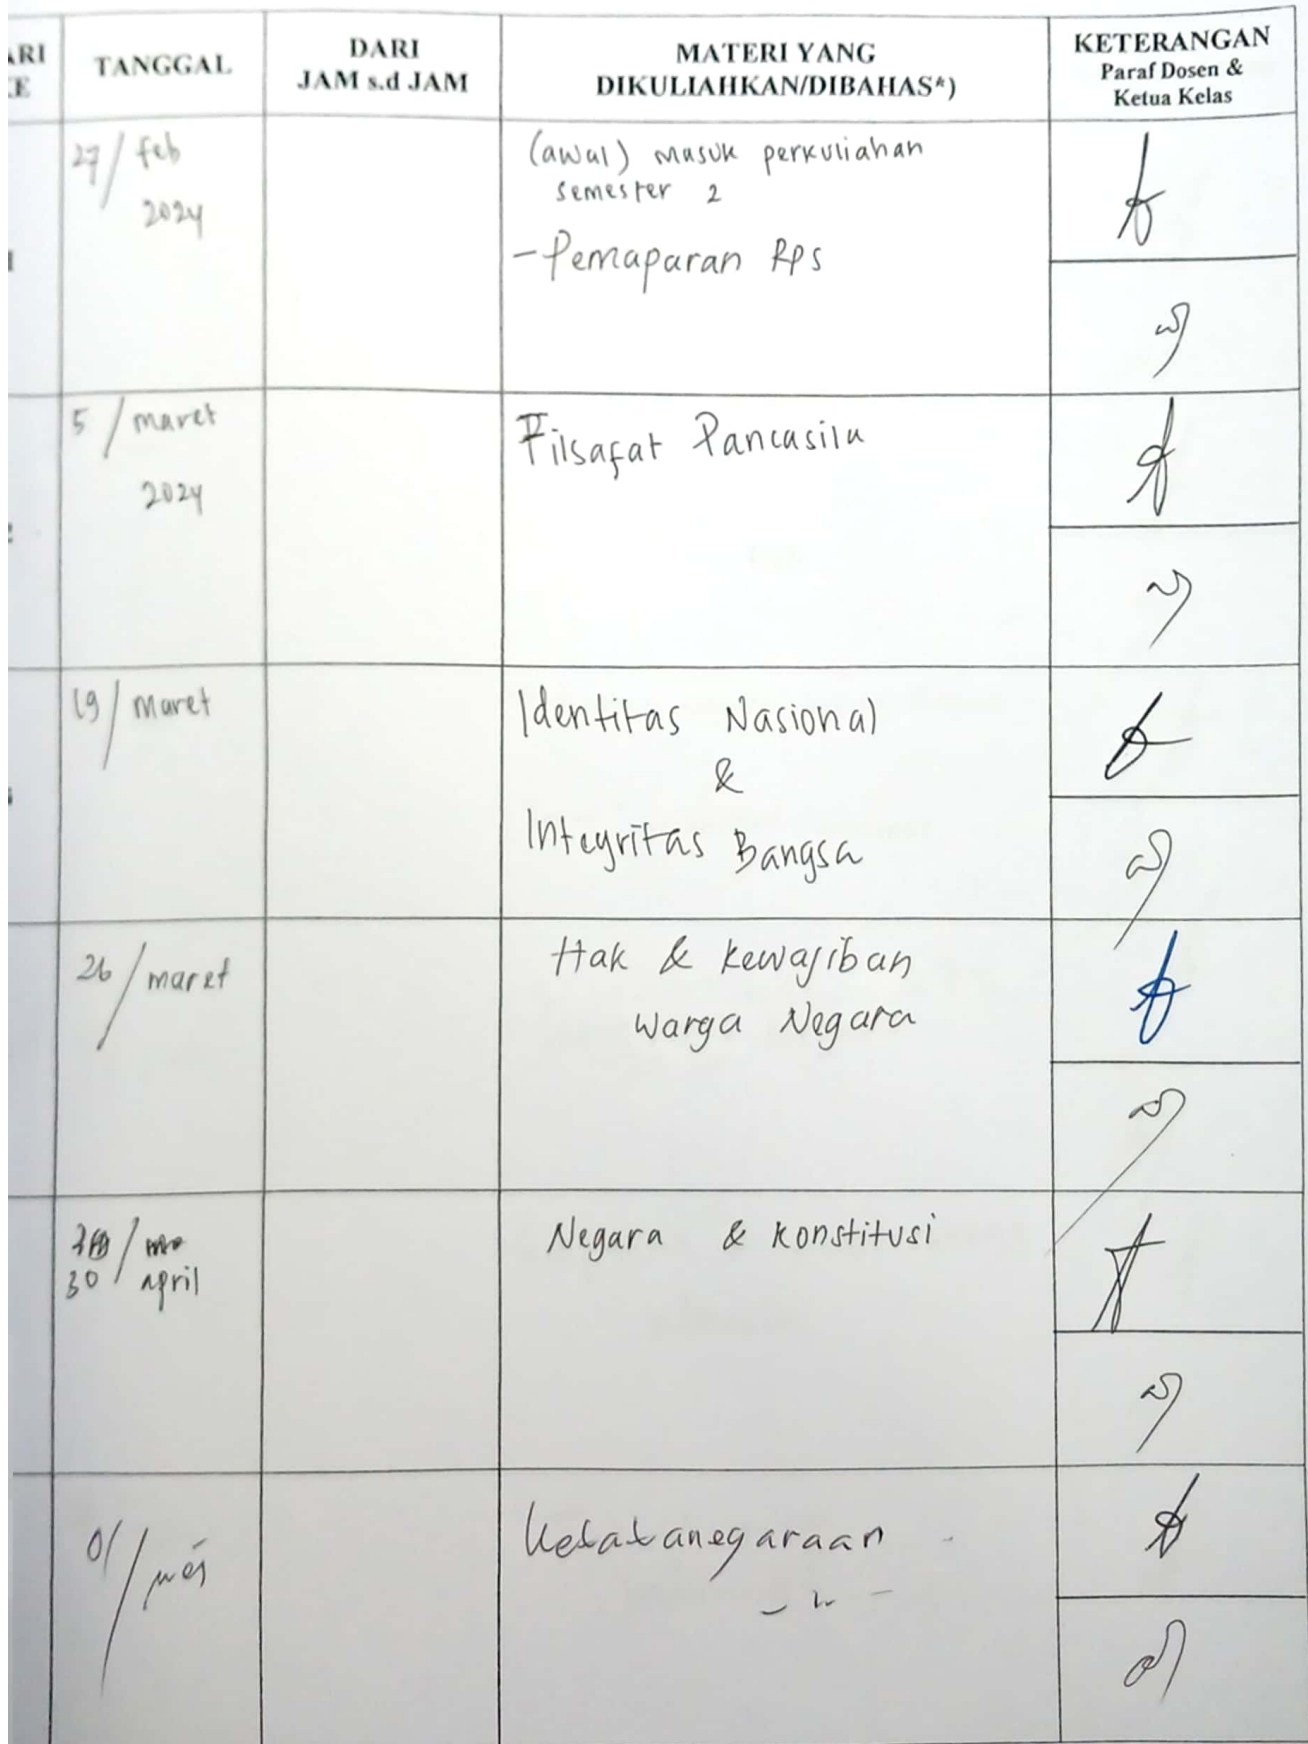 ARI
KE
TANGGAL
DARI
JAM s.d JAM
MATERI YANG
DIKULIAHKAN/DIBAHAS*)
KETERANGAN
Paraf Dosen &
Ketua Kelas
27 / feb
2024
(awal) masuk perkuliahan
semester 2
- Pemaparan Rps
5 / maret
2024
Filsafat Pancasila
19 / maret
Identitas Nasional
&
Integritas Bangsa
26 / maret
Hak & kewajiban
warga Negara
30 / april
Negara & konstitusi
Ketatanegaraan